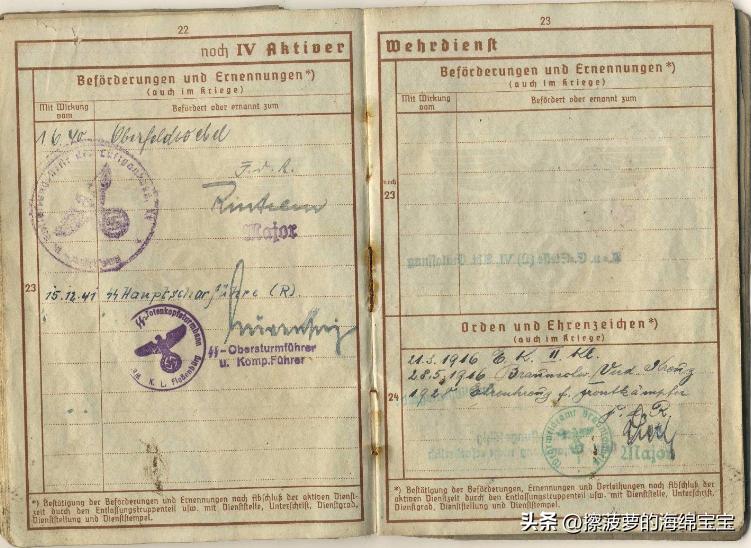 22
noch IV Aktiver
Beförderungen und Ernennungen*)
(auch im Kriege)
Mit Wirkung vom
Befördert oder ernannt zum
1.6.40 Oberfeldwebel
F.d.R.
Major
23
15.12.41 SS Hauptscharführer (R)
SS-Totenkopfsturmbann
K. L. Floßenbürg
SS-Obersturmführer
u. Komp.Führer
*) Bestätigung der Beförderungen und Ernennungen nach Abschluß der aktiven Dienst-
zeit durch den Entlassungstruppenteil usw. mit Dienststelle, Unterschrift, Dienstgrad,
Dienststellung und Dienststempel.
23
Wehrdienst
Beförderungen und Ernennungen*)
(auch im Kriege)
Mit Wirkung vom
Befördert oder ernannt zum
noch
23
Orden und Ehrenzeichen*)
(auch im Kriege)
21.3.1916 E. K. II Kl.
28.5.1916 Braunschw. Verd. Kreuz
24
Ehrenkreuz f. Frontkämpfer
F. d. R.
Major
*) Bestätigung der Beförderungen, Ernennungen und Verleihungen nach Abschluß der
aktiven Dienstzeit durch den Entlassungstruppenteil usw. mit Dienststelle, Unterschrift,
Dienstgrad, Dienststellung und Dienststempel.
头条 @擦菠萝的海绵宝宝